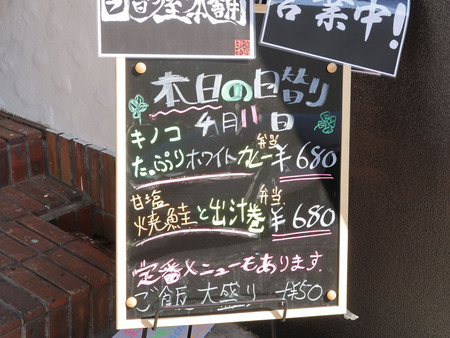 営業中!
本日の日替り
4月11日
キノコ
たっぷりホワイトカレー弁当 ¥680
甘塩
焼鮭と出汁巻弁当 ¥680
定番メニューもあります
ご飯 大盛り +¥50